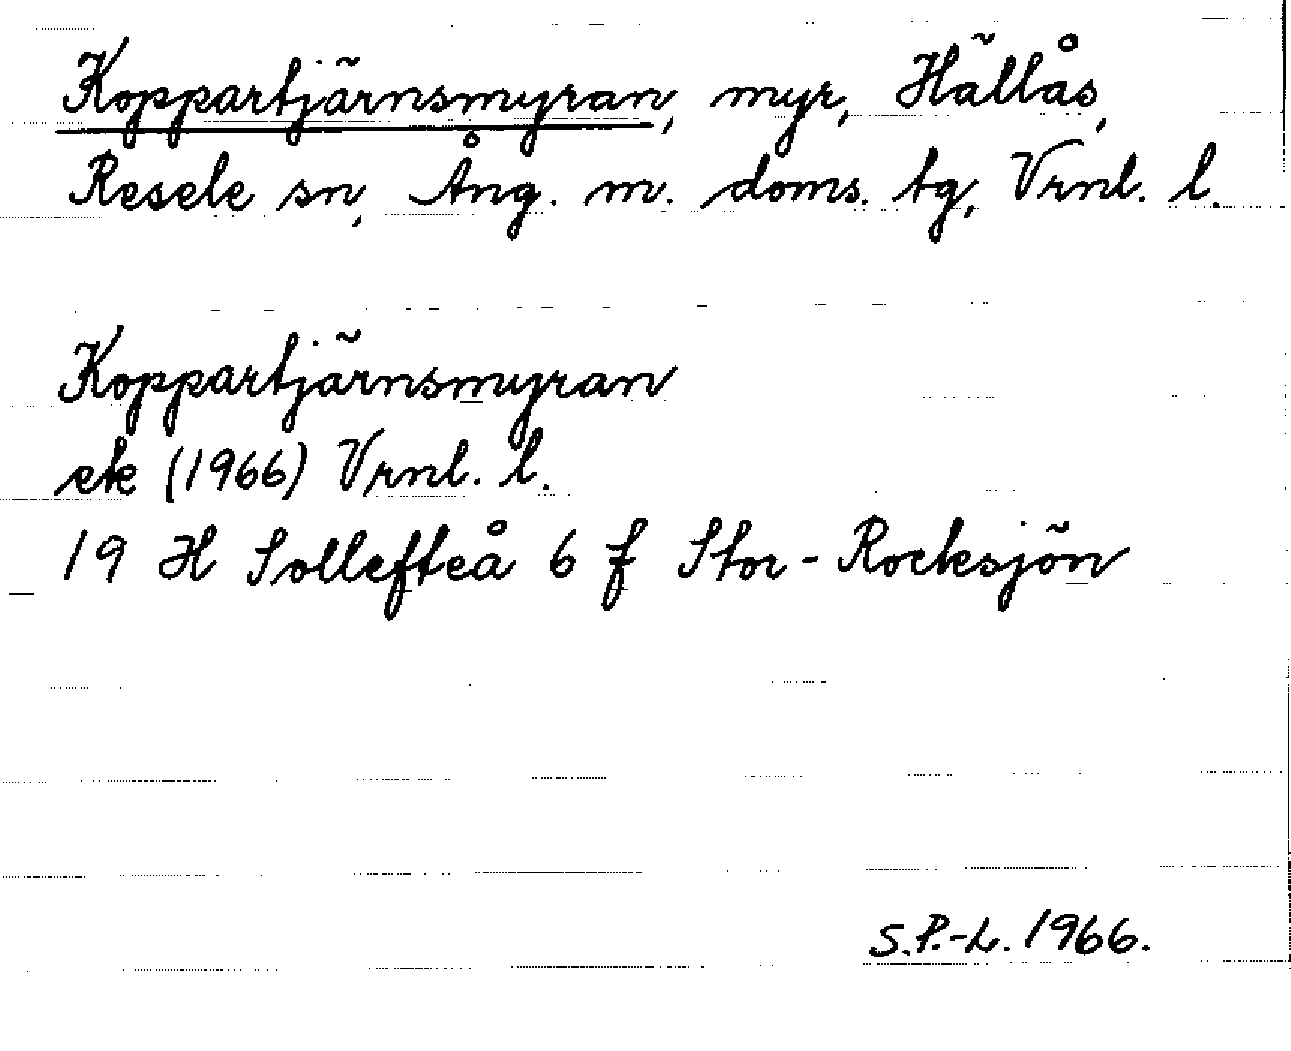 Koppartjärnsmyran, myr, Hällås,
Resele sn, Ång. m. doms. tg, Vrnl. l.
Koppartjärnsmyran
ek (1966) Vrnl. l.
19 H Sollefteå 6 f Stor-Rocksjön
S.P.-L. 1966.